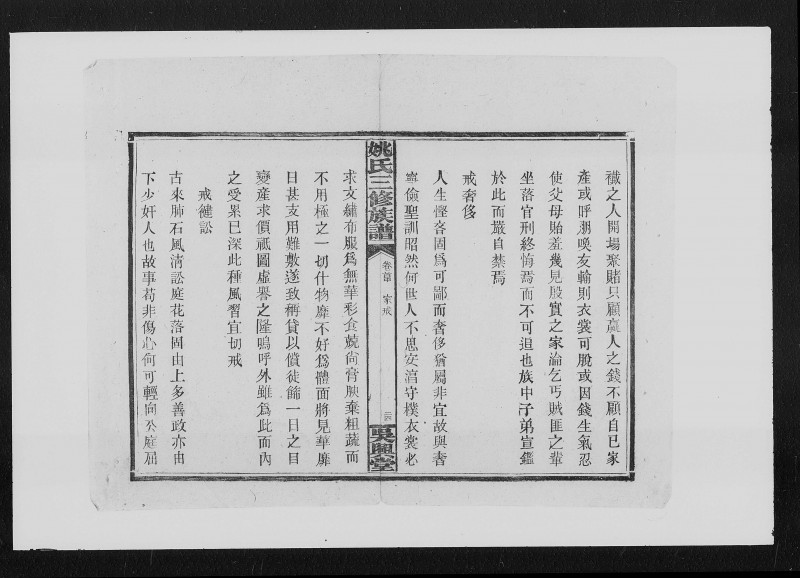 穢之人開場聚賭只顧贏人之錢不顧自已家
產或呼朋喚友輸則衣裳可脫或因錢生氣忍
使父母貽羞幾見殷實之家淪乞丐賊匪之輩
坐落官刑終悔焉而不可追也族中子弟宣鑑
於此而嚴自禁焉
戒奢侈
人生慳吝固爲可鄙而奢侈猶屬非宜故與奢
寧儉聖訓昭然何世人不思安淡守樸衣裳必
姚氏三修族譜
卷首 家戒
吳興堂
求文繡布服爲無華彩食蔬尙膏腴棄粗蔬而
不用極之一切什物靡不好爲體面將見華靡
日甚支用難敷遂致稱貸以償徒飾一日之目
變產求價祗圖虛譽之隆嗚呼外雖爲此而內
之受累已深此種風習宜切戒
戒健訟
古來肺石風清訟庭花落固由上多善政亦由
下少奸人也故事苟非傷心何可輕向公庭屈